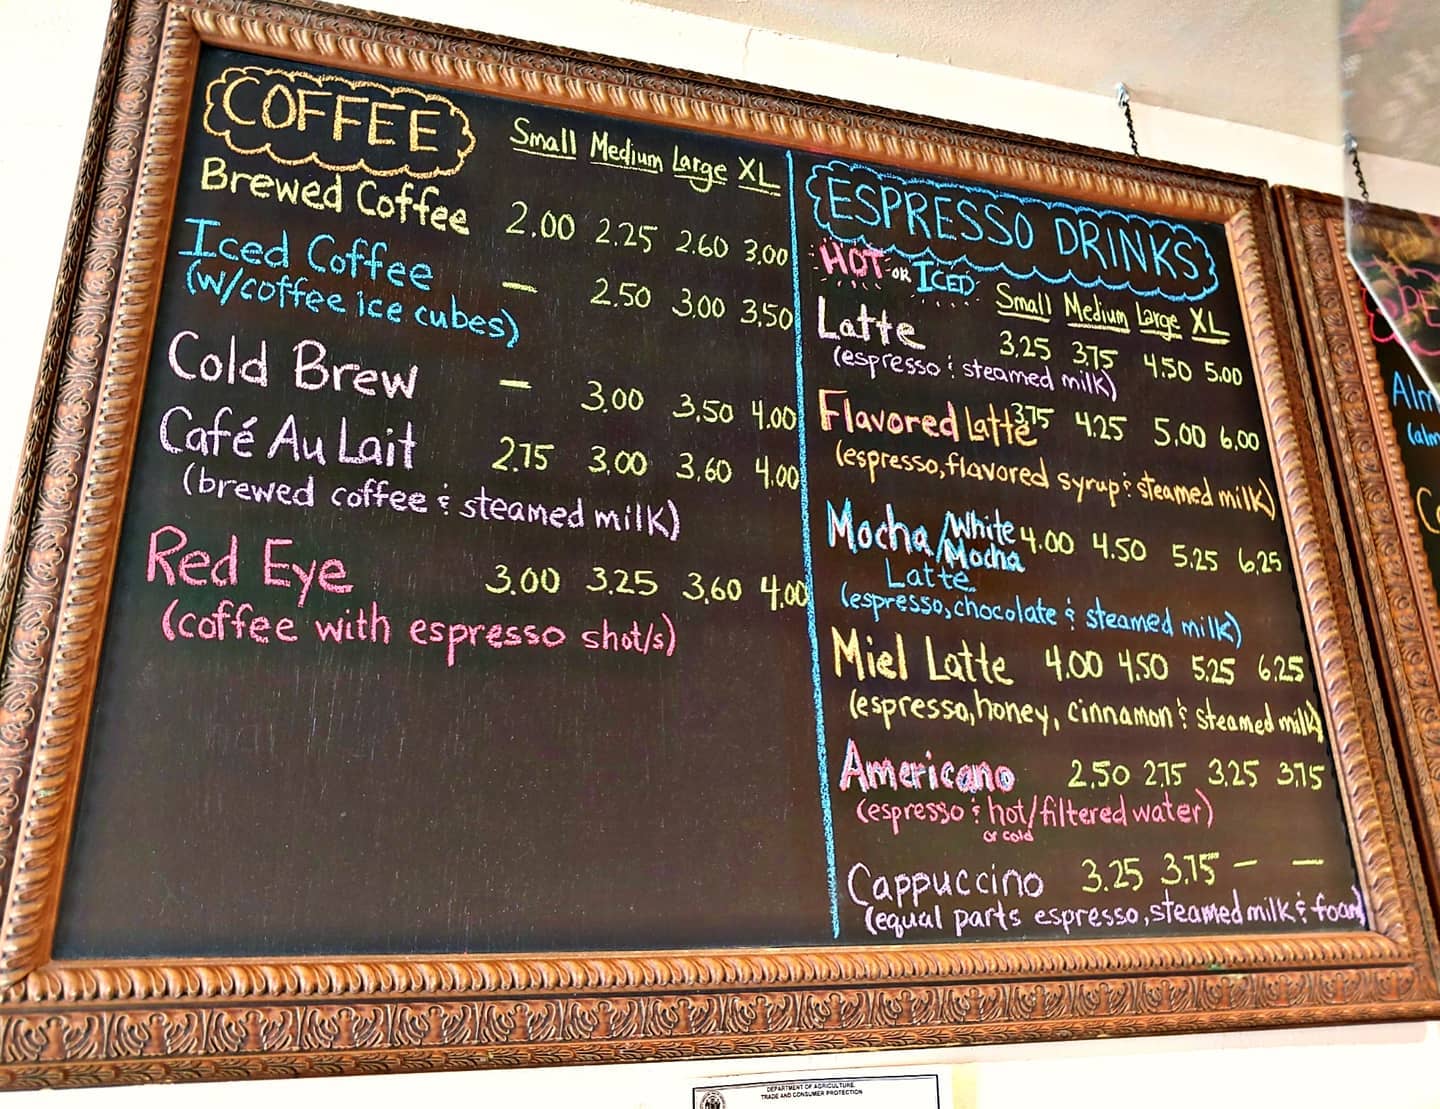 COFFEE
Small Medium Large XL
Brewed Coffee 2.00 2.25 2.60 3.00
Iced Coffee — 2.50 3.00 3.50
(w/coffee ice cubes)
Cold Brew — 3.00 3.50 4.00
Café Au Lait 2.75 3.00 3.60 4.00
(brewed coffee & steamed milk)
Red Eye 3.00 3.25 3.60 4.00
(coffee with espresso shot/s)
ESPRESSO DRINKS
HOT OR ICED
Small Medium Large XL
Latte 3.25 3.75 4.50 5.00
(espresso & steamed milk)
Flavored Latte 3.75 4.25 5.00 6.00
(espresso, flavored syrup & steamed milk)
Mocha/White Mocha 4.00 4.50 5.25 6.25
Latte
(espresso, chocolate & steamed milk)
Miel Latte 4.00 4.50 5.25 6.25
(espresso, honey, cinnamon & steamed milk)
Americano 2.50 2.75 3.25 3.75
(espresso & hot/filtered water)
or cold
Cappuccino 3.25 3.75 — —
(equal parts espresso, steamed milk & foam)
DEPARTMENT OF AGRICULTURE,
TRADE AND CONSUMER PROTECTION